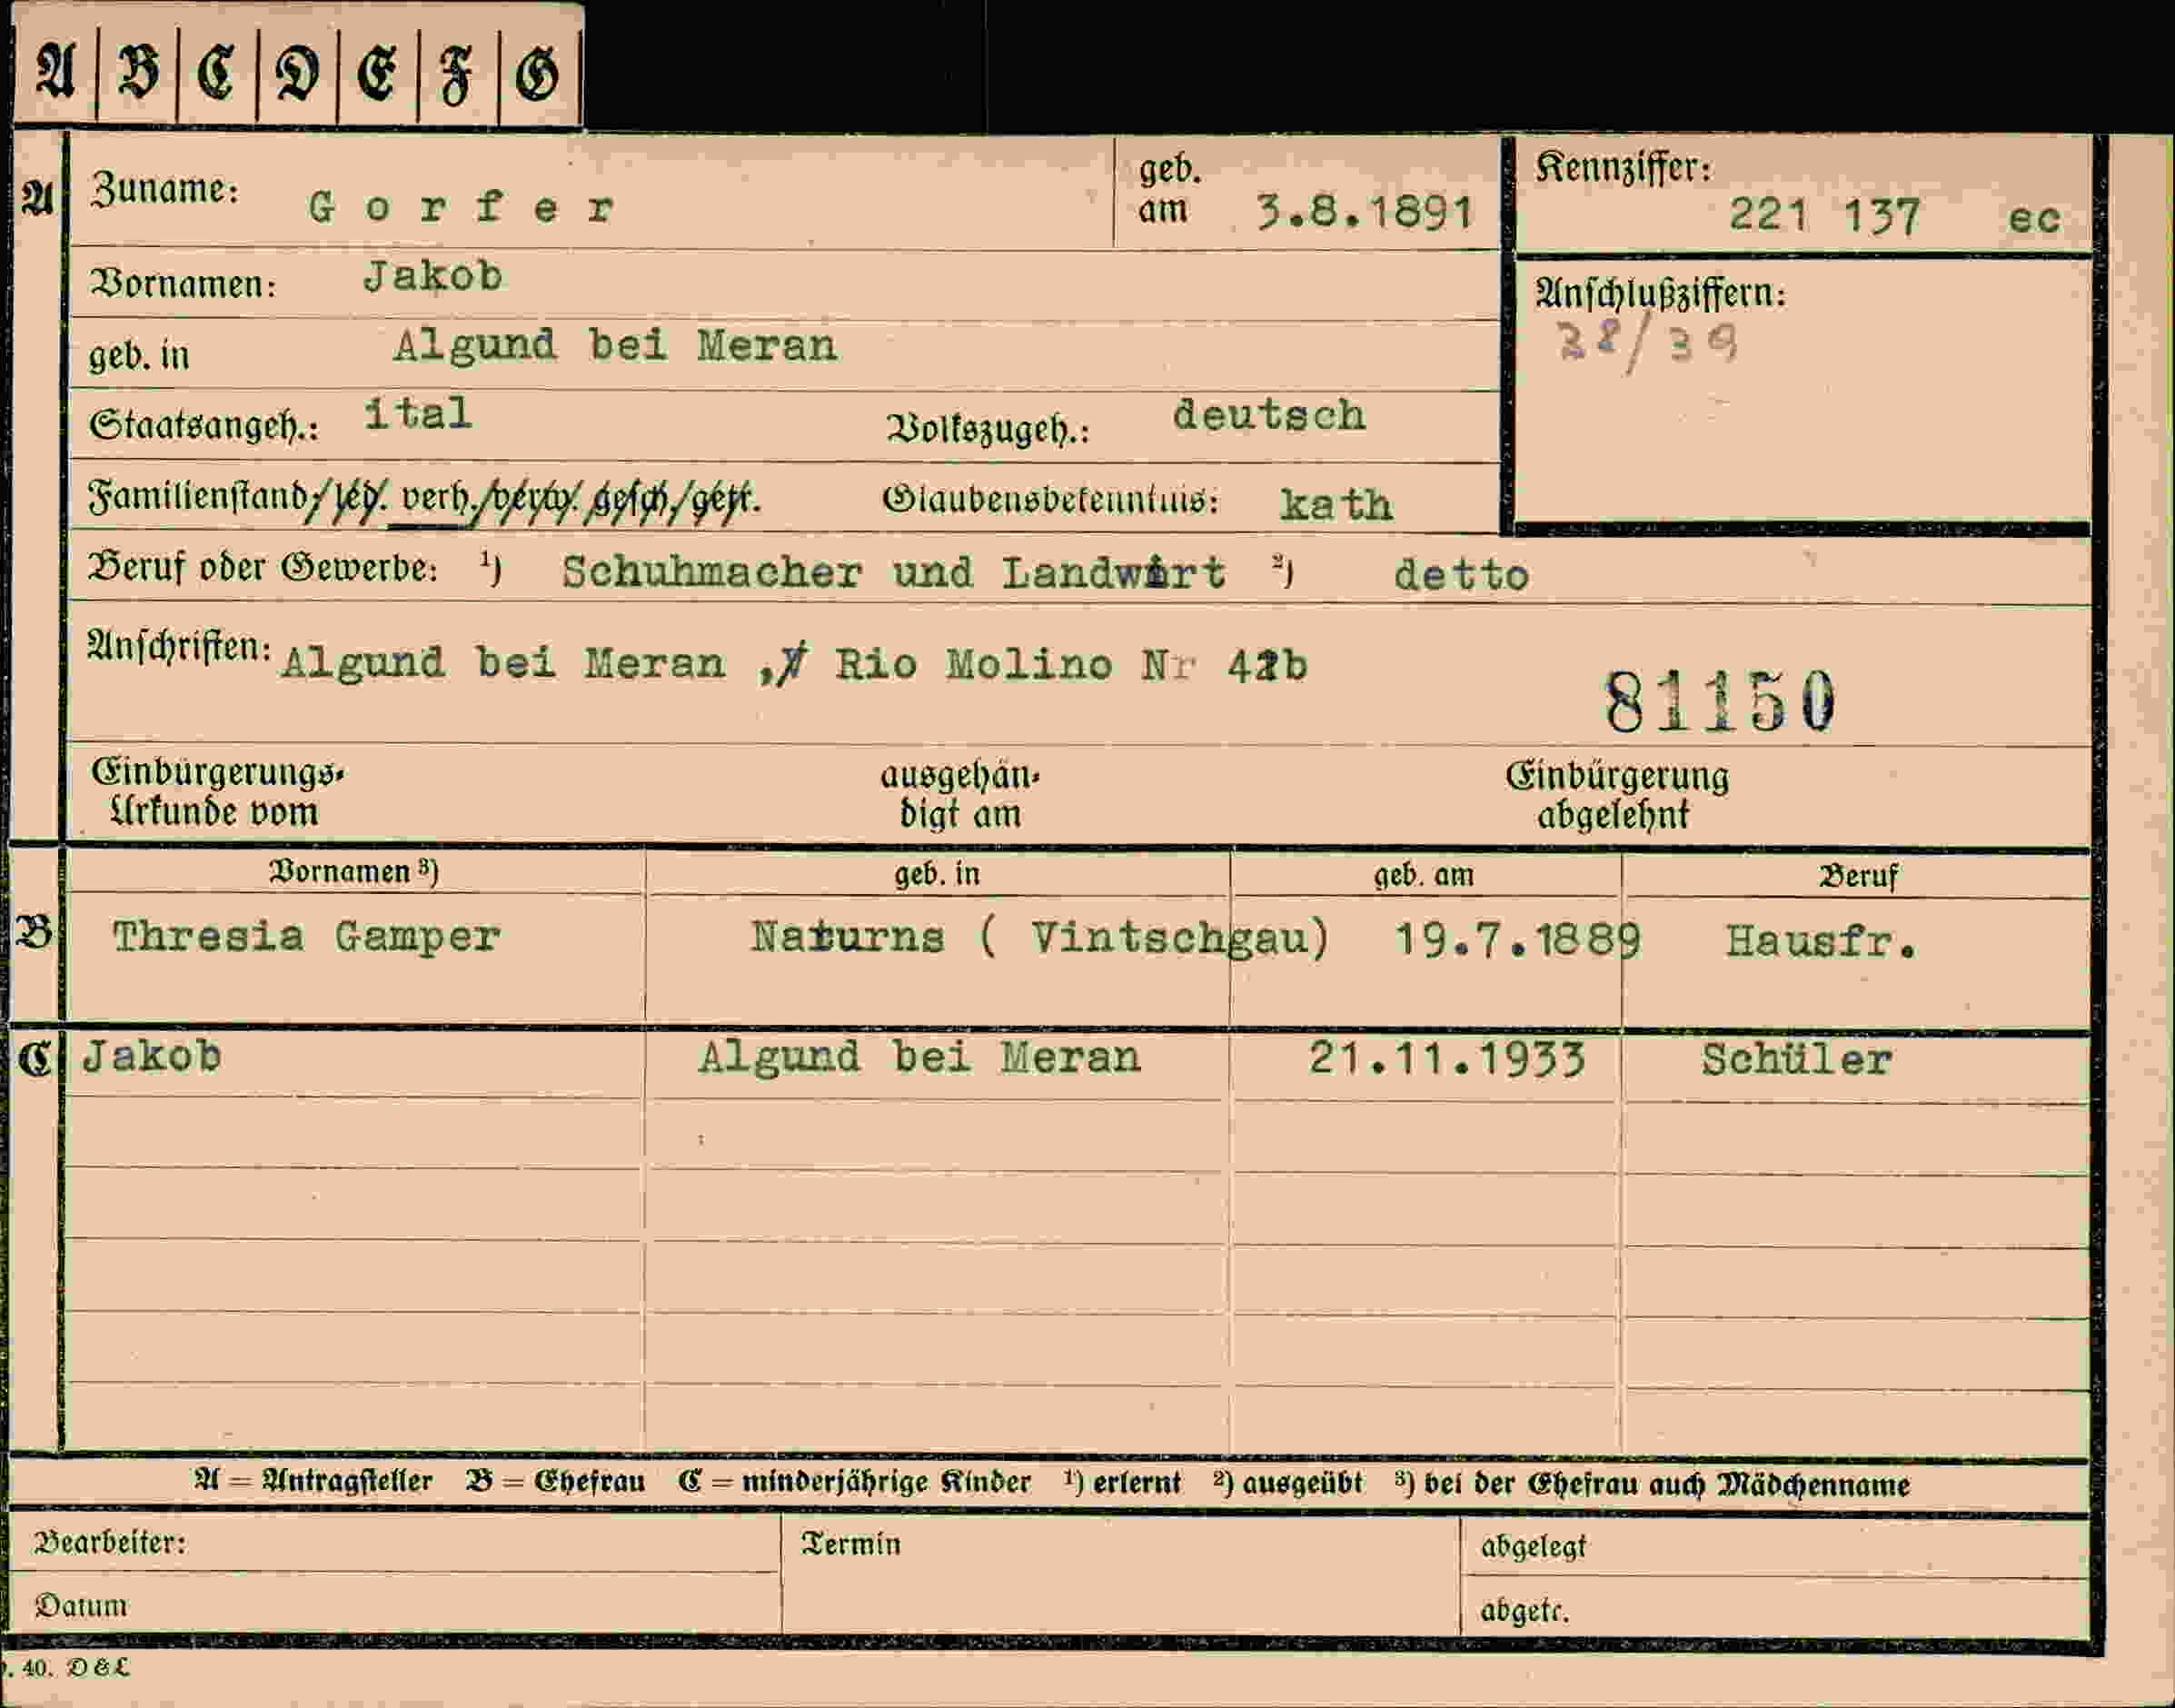 A B C D E F G
A Zuname: Gorfer geb. am 3.8.1891 Kennziffer: 221 137 ec
Vornamen: Jakob Anschlußziffern:
geb. in Algund bei Meran 38/39
Staatsangeh.: ital Volkszugeh.: deutsch
Familienstand: led. verh. verw. gesch. getr. Glaubensbekenntnis: kath
Beruf oder Gewerbe: ¹) Schuhmacher und Landwirt ²) detto
Anschriften: Algund bei Meran , Rio Molino Nr
81150
Einbürgerungs-Urkunde vom ausgehändigt am Einbürgerung abgelehnt
Vornamen ³) geb. in geb. am Beruf
B Thresia Gamper Naturns ( Vintschgau) 19.7.1889 Hausfr.
C Jakob Algund bei Meran 21.11.1933 Schüler
A = Antragsteller B = Ehefrau C = minderjährige Kinder ¹) erlernt ²) ausgeübt ³) bei der Ehefrau auch Mädchenname
Bearbeiter: Termin abgelegt
Datum abgetr.
40. D & L